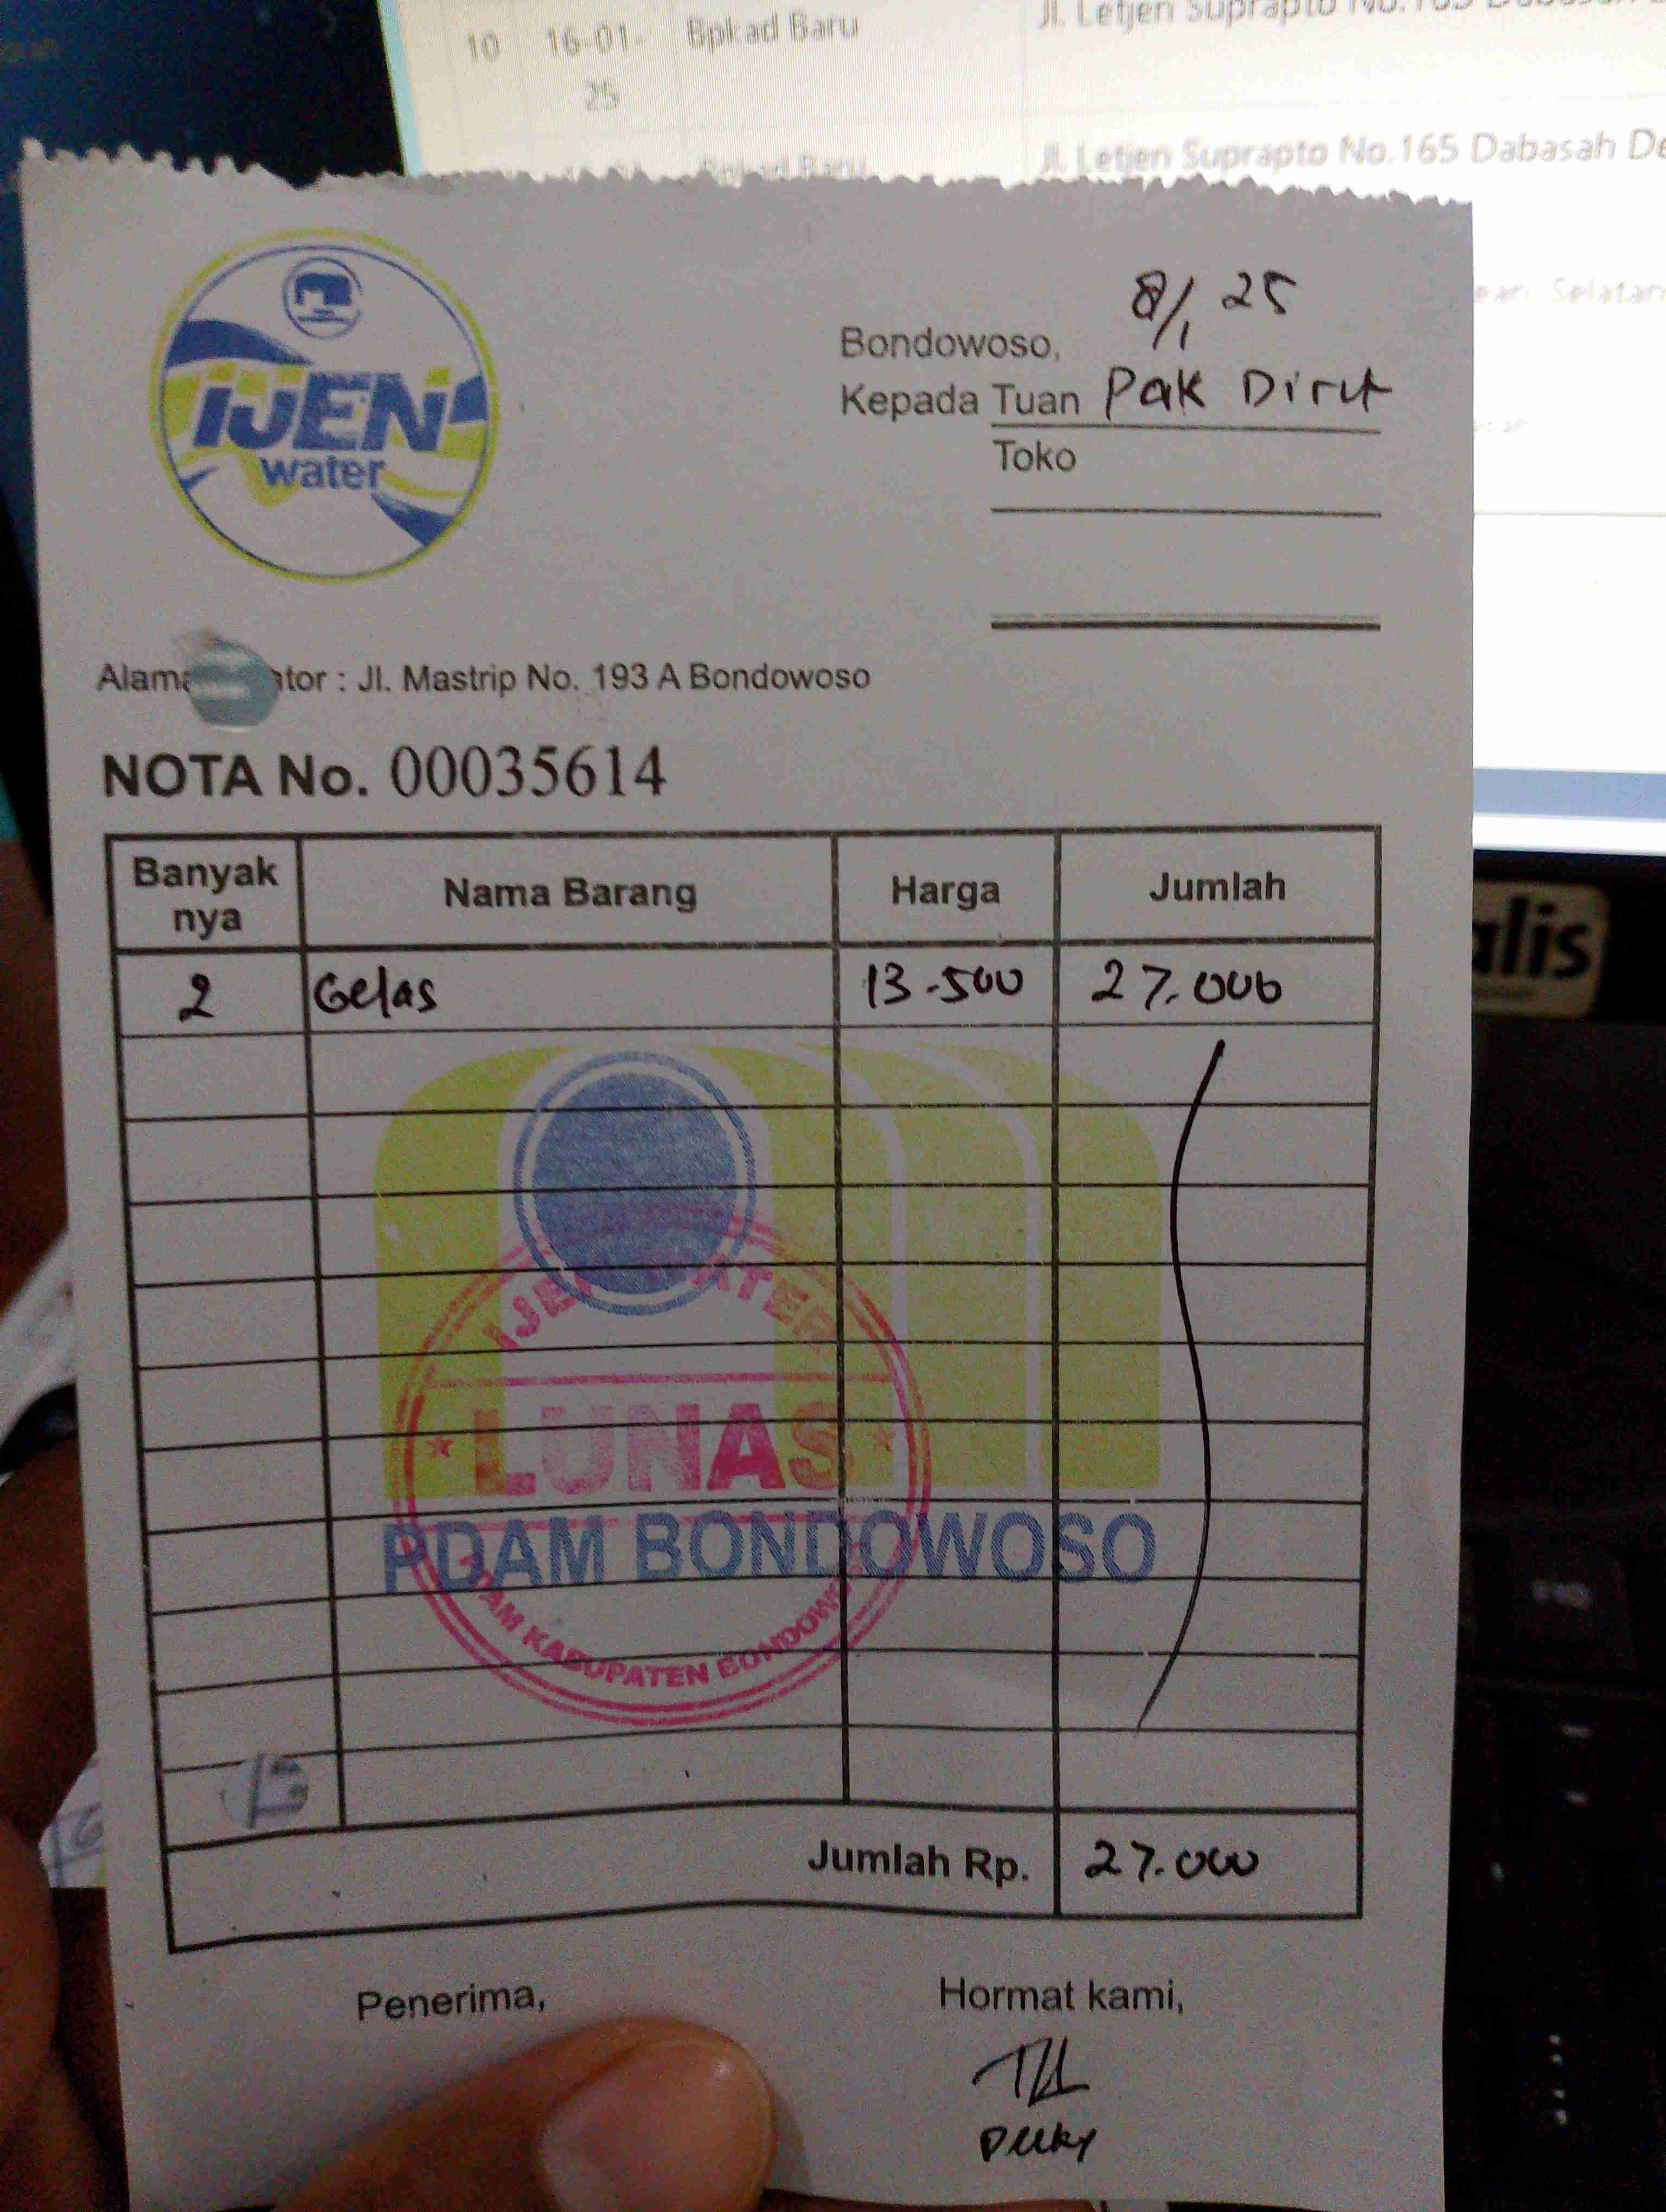 10 16-01-25 Bpkad Baru Jl. Letjen Suprapto No.165 Dabasah
Bpkad Baru Jl. Letjen Suprapto No.165 Dabasah De
Selatan
IJEN
water
Bondowoso, 8/1 25
Kepada Tuan Pak Dirut
Toko
Alama ator : Jl. Mastrip No. 193 A Bondowoso
NOTA No. 00035614
Banyak nya Nama Barang Harga Jumlah
2 Gelas 13.500 27.000
IJEN WATER
LUNAS
PDAM BONDOWOSO
PDAM KABUPATEN BONDOWOSO
Jumlah Rp. 27.000
Penerima, Hormat kami,
alis